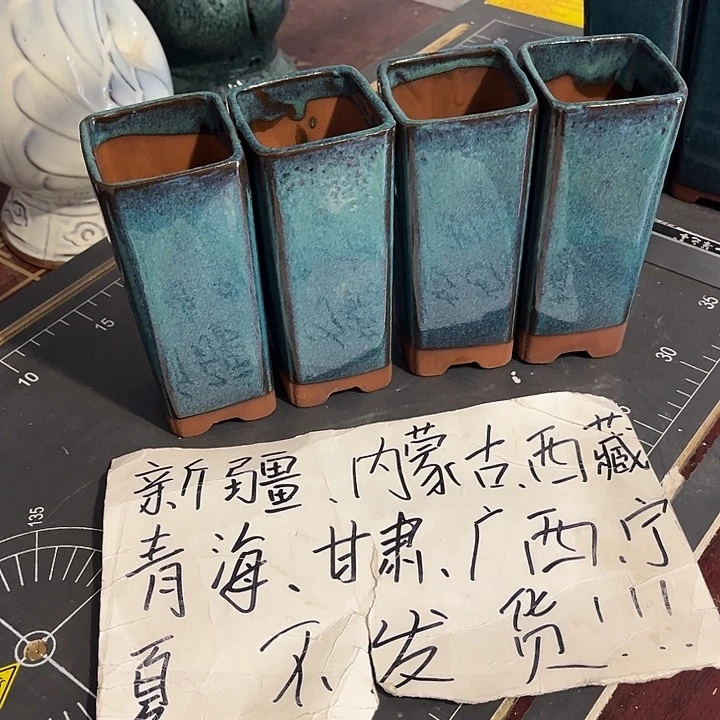 10
15
30
35
135
新疆、内蒙古、西藏
青海、甘肃、广西、宁
夏 不发货!!!